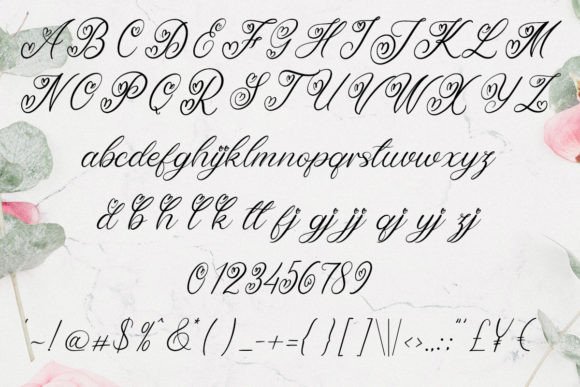 A B C D E F G H I J K L M
N O P Q R S T U V W X Y Z
abcdefghijklmnopqrstuvwxyz
d b h l k tt fj gj jj qj yj zj
0123456789
'~!@#$%^&*()_-+={}[]\||/<>.,:;"'£¥€